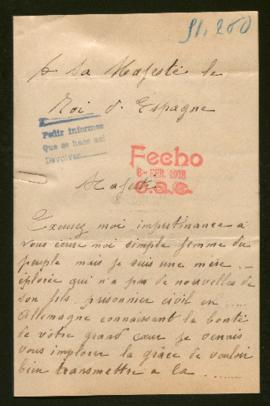 51.260
A Sa Majesté le
Roi d'Espagne
Pedir informes
Que se hace así
Devolver
Fecho
8 FEB. 1918
Majesté
Excusez moi impertinance a
vous écrire moi simple femme du
peuple mais je suis une mère
éplorée qui n'a pas de nouvelles de
son fils prisonnier civil en
Allemagne connaissant la bonté
de votre grand cœur je viens
vous implorer la grâce de vouloir
bien transmettre a la